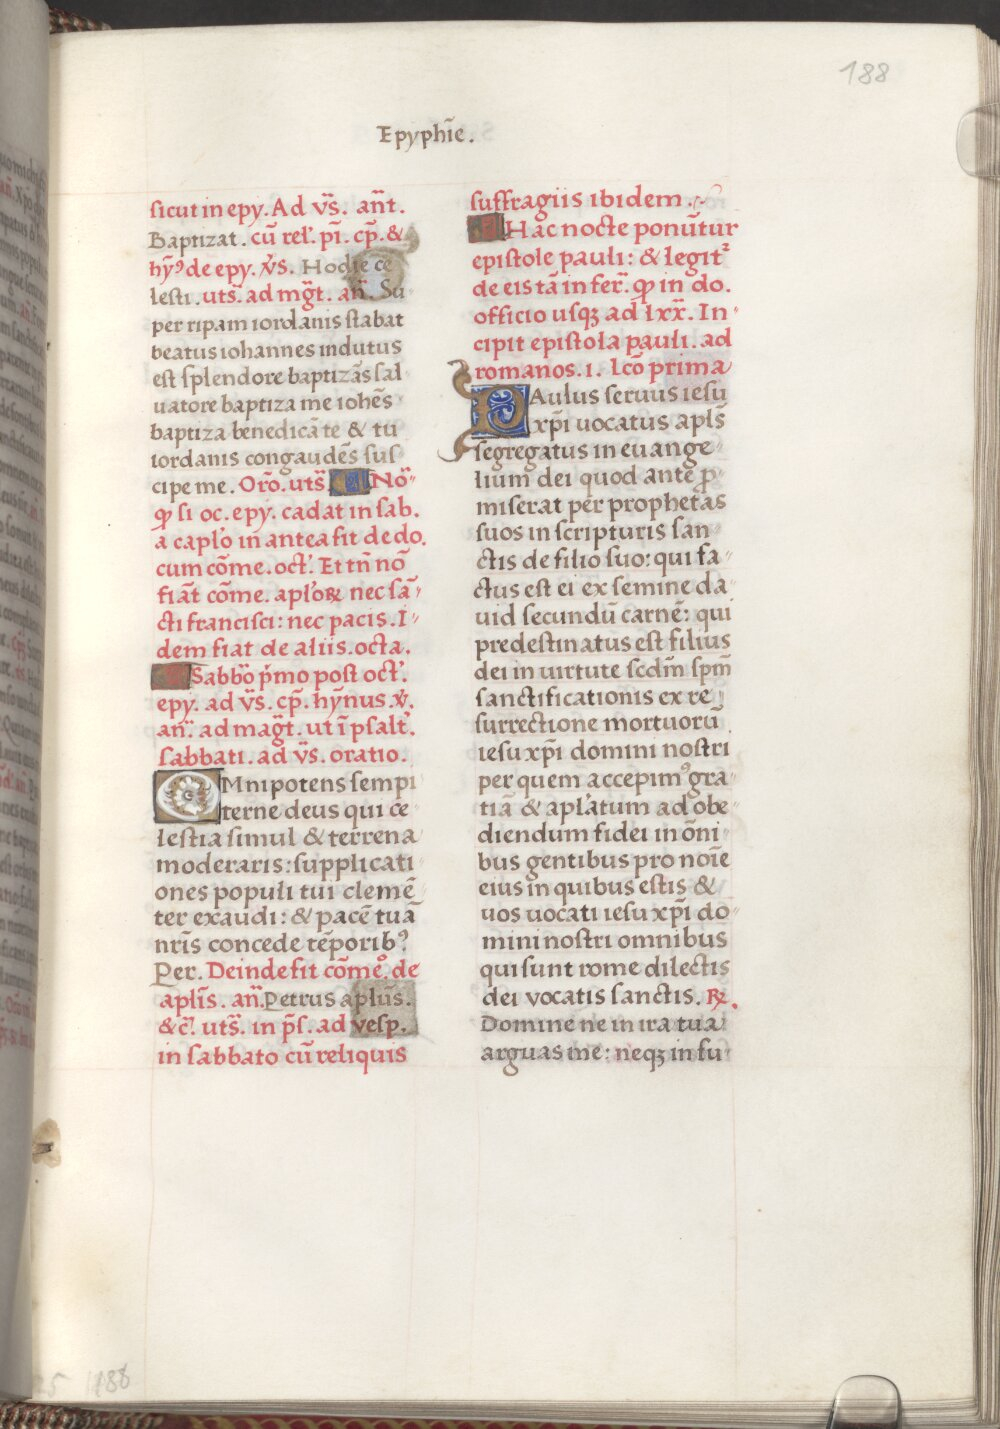 188
Epyphīe.
sicut in epy. Ad v̄s. an̄t.
Baptizat. cū rel'. pī. cp̄. &
hȳꝰ de epy. v̄s. Hodie ce
lesti. uts̄. ad mg̃t. an̄. Su
per ripam iordanis stabat
beatus iohannes indutus
est splendore baptizās sal
uatore baptiza me iohēs
baptiza benedicā te & tu
iordanis congaudēs sus
cipe me. Orō. uts̄. Nō
ꝙ si oc. epy. cadat in sab.
a caplo in antea fit de do.
cum cōme. oct'. Et tn̄ nō
fiāt cōme. aploꝝ nec sā
cti francisci: nec pacis. I
dem fiat de aliis. octa.
Sabbō p̄mo post oct'.
epy. ad v̄s. cp̄. hȳnus. v̄.
an̄. ad mag̃t. ut ī psalt'.
sabbati. ad v̄s. oratio.
OMnipotens sempi
terne deus qui ce
lestia simul & terrena
moderaris: supplicati
ones populi tui clemē
ter exaudi: & pacē tuā
nr̄is concede tēporibꝰ
Per. Deinde fit cōmeº. de
aplīs. an̄. Petrus aplūs.
& c̄. uts̄. in p̄s. ad vesp.
in sabbato cū reliquis
suffragiis ibidem.
Hac nocte ponūtur
epistole pauli: & legit᷑
de eis tā in fer̄. ꝙ in do.
officio usqꝫ ad lxx̄. In
cipit epistola pauli. ad
romanos. 1. lcō prima
PAulus seruus iesu
xp̄i uocatus apls̄
segregatus in euange
lium dei quod ante p̄
miserat per prophetas
suos in scripturis san
ctis de filio suo: qui fa
ctus est ei ex semine da
uid secundū carnē: qui
predestinatus est filius
dei in uirtute scd̄m sp̄m
sanctificationis ex re
surrectione mortuorū
iesu xp̄i domini nostri
per quem accepimꝰ gra
tiā & aplatum ad obe
diendum fidei in ōni
bus gentibus pro noīe
eius in quibus estis &
uos uocati iesu xp̄i do
mini nostri omnibus
qui sunt rome dilectis
dei vocatis sanctis. ℟.
Domine ne in ira tua
arguas me: neqꝫ in fu
188